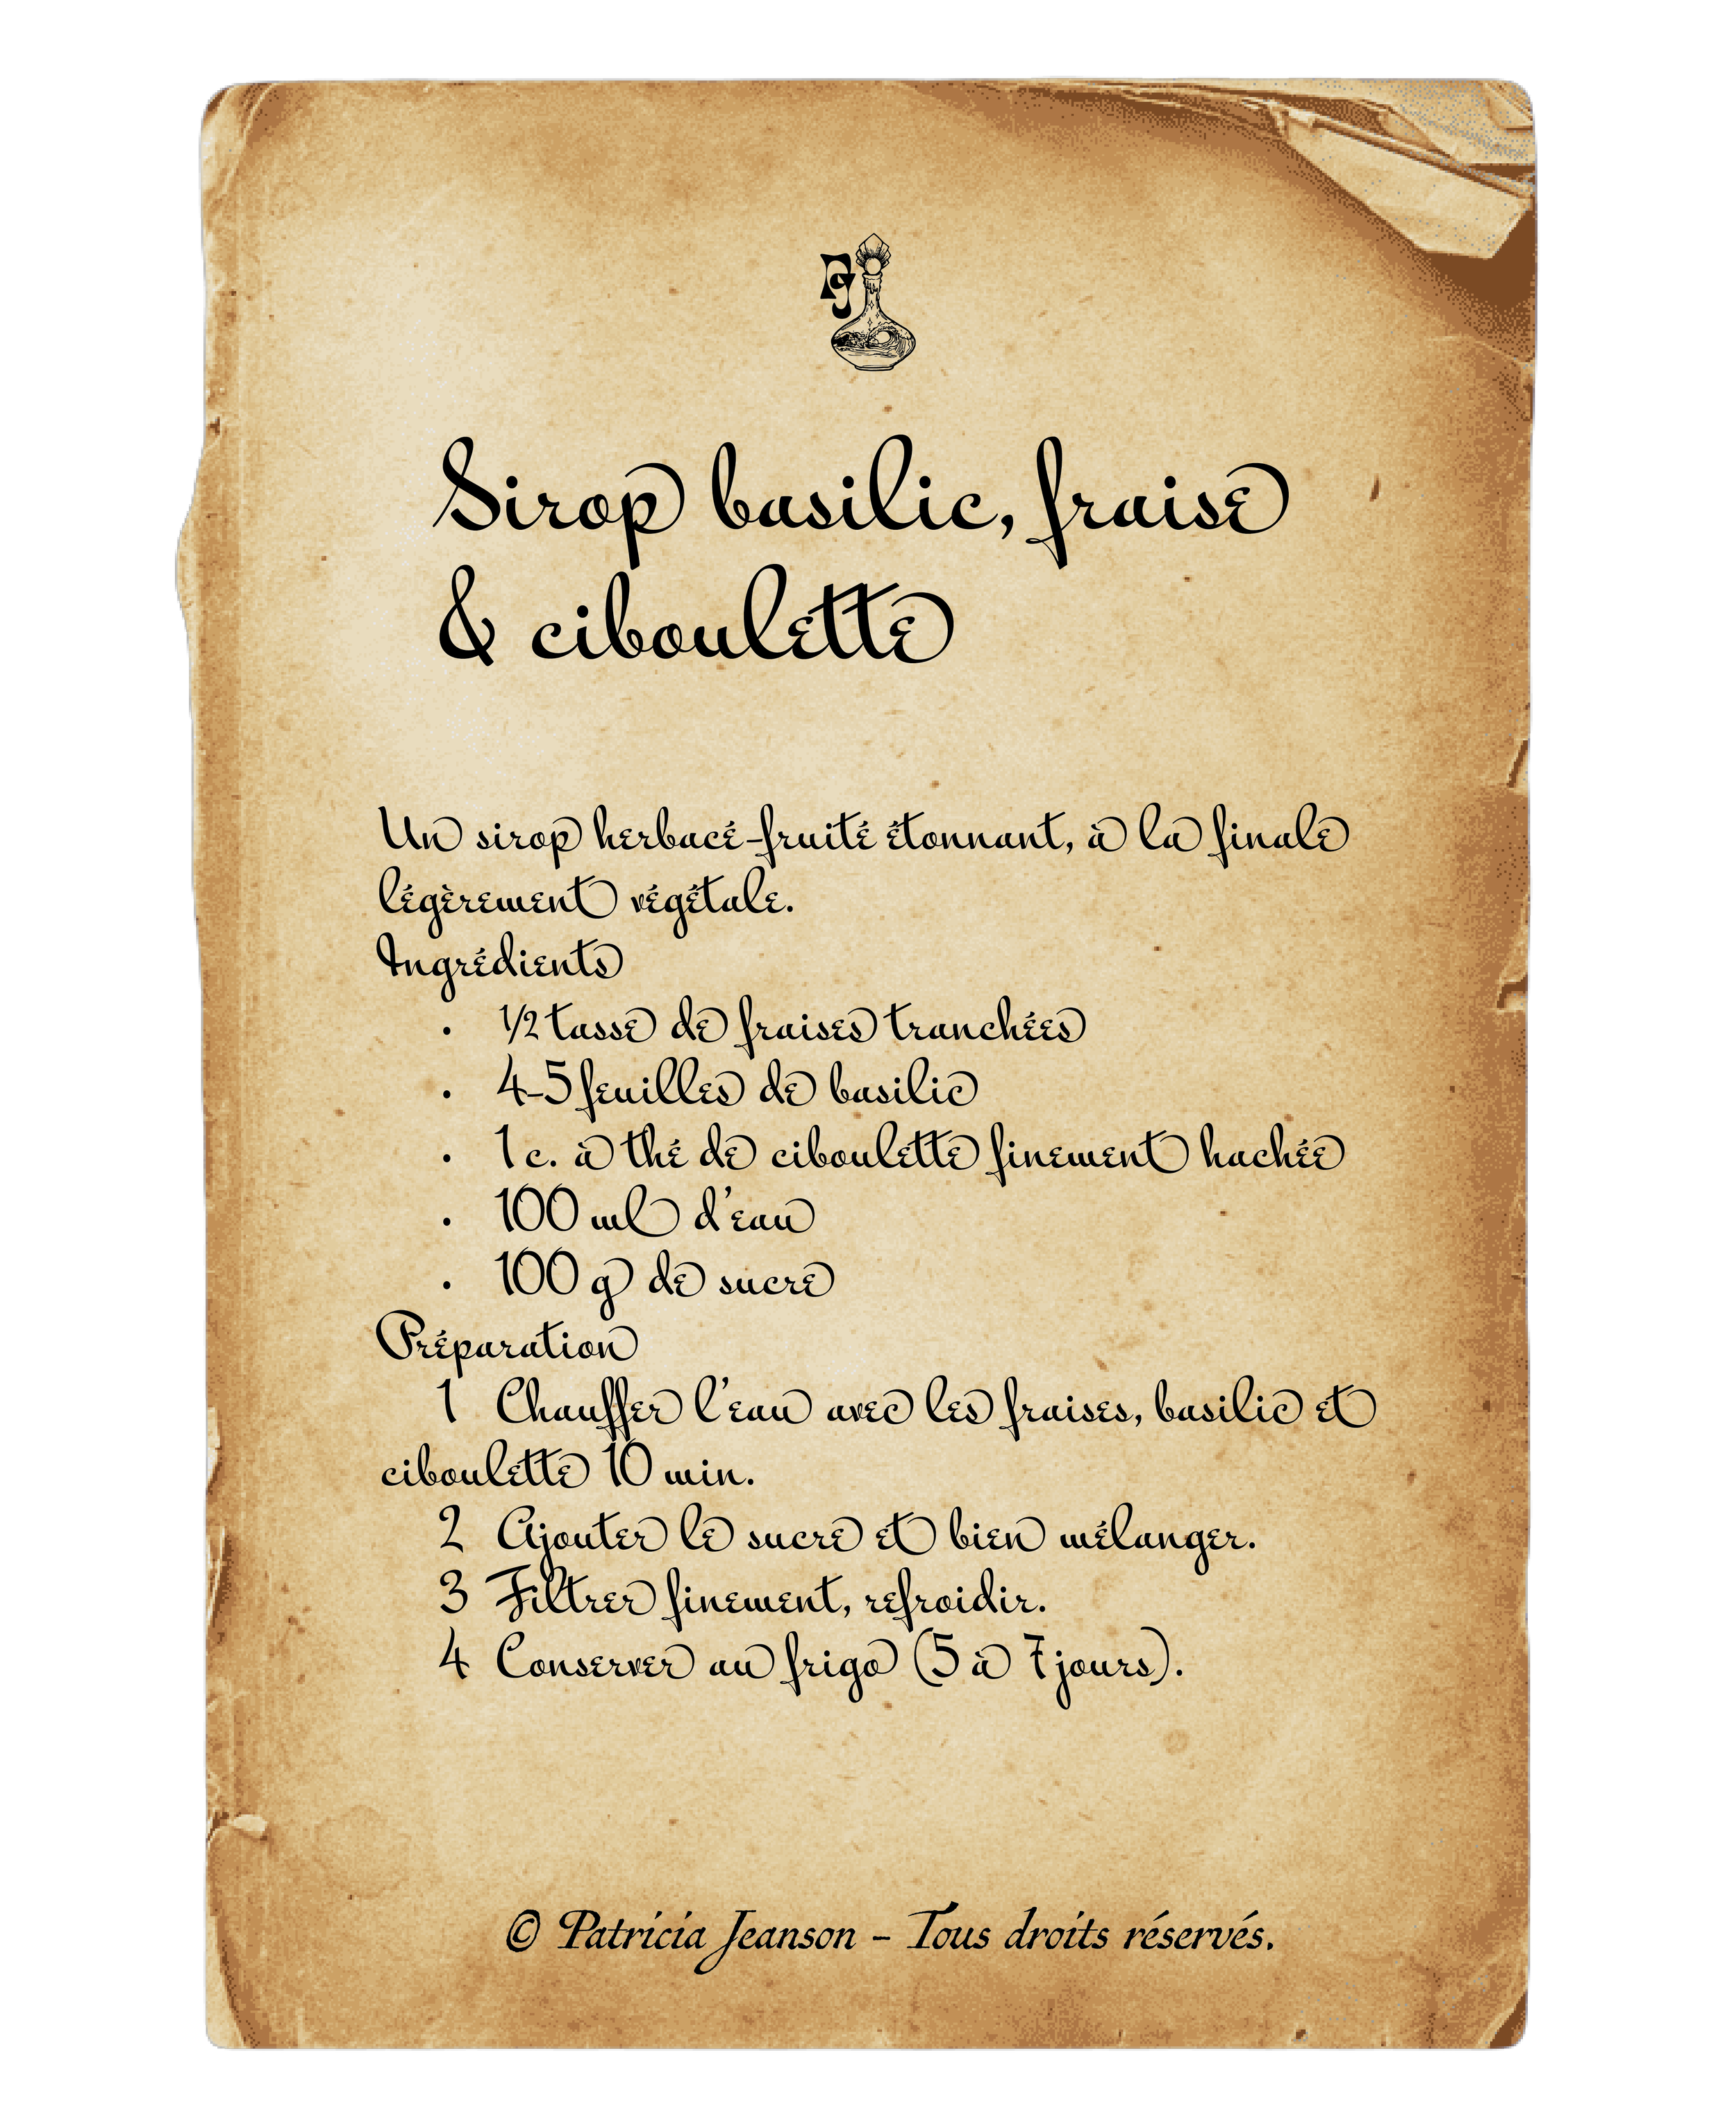 PJ
Sirop basilic, fraise
& ciboulette
Un sirop herbacé-fruité étonnant, à la finale
légèrement végétale.
Ingrédients
• ½ tasse de fraises tranchées
• 4-5 feuilles de basilic
• 1 c. à thé de ciboulette finement hachée
• 100 ml d'eau
• 100 g de sucre
Préparation
1 Chauffer l'eau avec les fraises, basilic et
ciboulette 10 min.
2 Ajouter le sucre et bien mélanger.
3 Filtrer finement, refroidir.
4 Conserver au frigo (5 à 7 jours).
© Patricia Jeanson - Tous droits réservés.